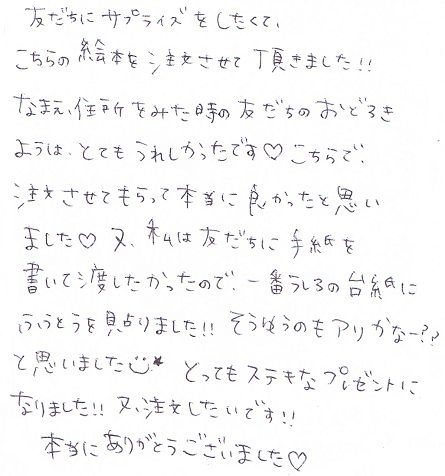 友だちに サプライズ をしたくて、
こちらの 絵本を 注文させて 頂きました!!
なまえ、住所 をみた時の 友だちの おどろき
ようは、とても うれしかったです♡ こちらで、
注文 させてもらって 本当に 良かったと思い
ました♡ 又、私は 友だちに 手紙を
書いて渡したかったので、一番うしろの 台紙に
ふうとうを見占りました!! そうゆうのも アリ かなー??
と思いました☺★ とっても ステキな プレゼントに
なりました!! 又、注文したいです!!
本当に ありがとうございました♡